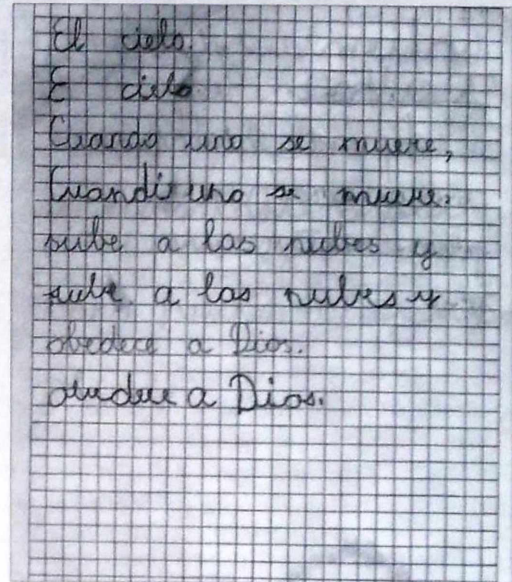 El cielo.
E cielo
Cuando uno se muere,
Cuandi uno se muere.
sube a las nubes y
sube a las nubes y
obedece a Dios.
a Dios.